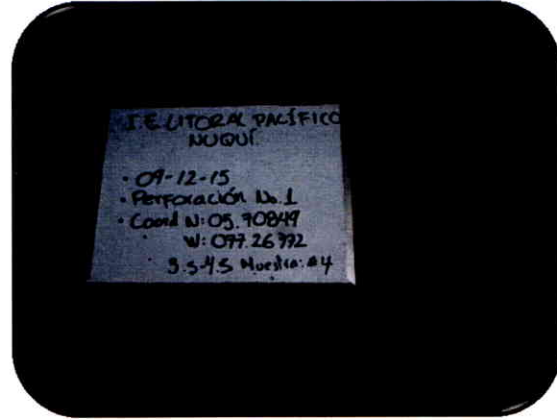 I.E LITORAL PACÍFICO
NUQUÍ
• 09-12-15
• Perforación No. 1
• Coord N: 05.70849
• W: 077.26372
• 3.5-4.5 Muestra: #4